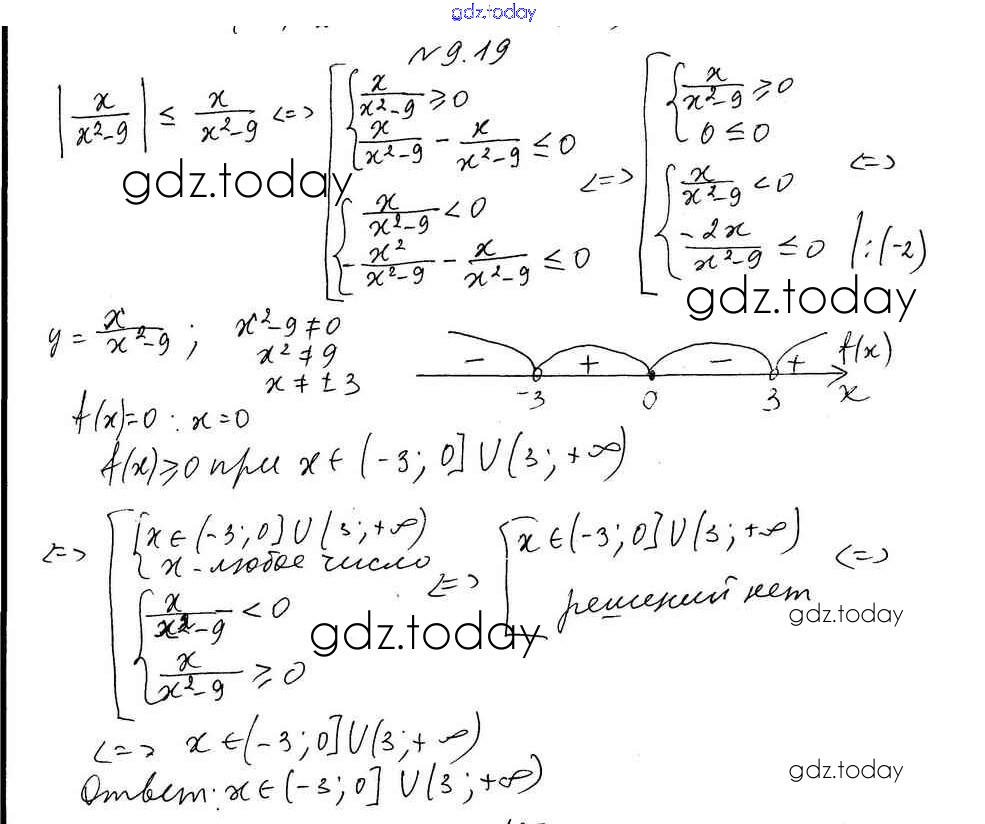 gdz.today
N 9.19
|x/(x²-9)| ≤ x/(x²-9) <=> [ { x/(x²-9) ≥ 0 ; x/(x²-9) - x/(x²-9) ≤ 0 ; { x/(x²-9) < 0 ; -x²/(x²-9) - x/(x²-9) ≤ 0 <=> [ { x/(x²-9) ≥ 0 ; 0 ≤ 0 ; { x/(x²-9) < 0 ; -2x/(x²-9) ≤ 0 |:(-2) <=>
gdz.today
gdz.today
y = x/(x²-9) ; x²-9≠0
x²≠9
x≠±3
- + - + f(x)
-3 0 3 x
f(x)=0 : x=0
f(x)≥0 при x∈(-3; 0] U (3; +∞)
<=> [ { x∈(-3; 0] U (3; +∞) ; x - любое число ; { x/(x²-9) < 0 ; x/(x²-9) ≥ 0 <=> [ x∈(-3; 0] U (3; +∞) ; решений нет <=>
gdz.today
gdz.today
<=> x∈(-3; 0] U (3; +∞)
Ответ: x∈(-3; 0] U (3; +∞)
gdz.today